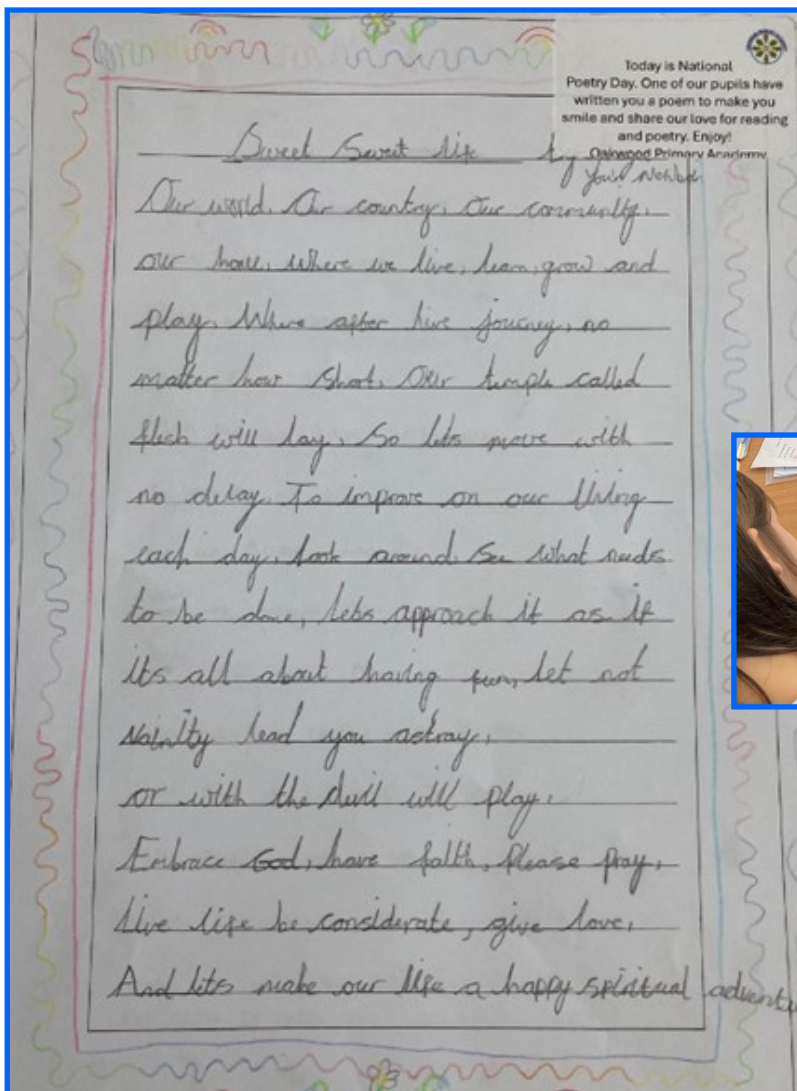 Today is National
Poetry Day. One of our pupils have
written you a poem to make you
smile and share our love for reading
and poetry. Enjoy!
Oakwood Primary Academy
Sweet Sweet life by
Our world, Our country, Our community,
our home, where we live, learn, grow and
play. Where after live journey, no
matter how short, Our temple called
flesh will lay. So lets move with
no delay. To improve on our living
each day, look around. See what needs
to be done, lets approach it as if
its all about having fun, let not
lead you astray,
or with the devil will play.
Embrace God, have faith, please pray,
live life be considerate, give love,
And lets make our life a happy spiritual